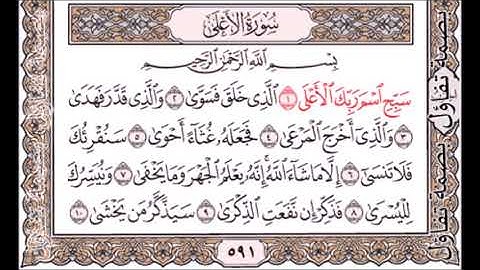 سُورَةُ الأَعْلَى
بِسْمِ اللَّهِ الرَّحْمَٰنِ الرَّحِيمِ
سَبِّحِ اسْمَ رَبِّكَ الْأَعْلَى ١ الَّذِي خَلَقَ فَسَوَّىٰ ٢ وَالَّذِي قَدَّرَ فَهَدَىٰ
٣ وَالَّذِي أَخْرَجَ الْمَرْعَىٰ ٤ فَجَعَلَهُ غُثَاءً أَحْوَىٰ ٥ سَنُقْرِئُكَ
فَلَا تَنْسَىٰ ٦ إِلَّا مَا شَاءَ اللَّهُ إِنَّهُ يَعْلَمُ الْجَهْرَ وَمَا يَخْفَىٰ ٧ وَنُيَسِّرُكَ
لِلْيُسْرَىٰ ٨ فَذَكِّرْ إِنْ نَفَعَتِ الذِّكْرَىٰ ٩ سَيَذَّكَّرُ مَنْ يَخْشَىٰ ١٠
٥٩١
بصمة تفاؤل بصمة تفاؤل
بصمة تفاؤل بصمة تفاؤل